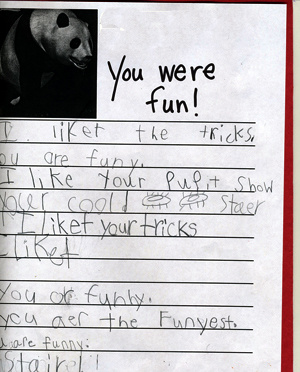 You were
fun!
I liket the tricks.
ou are funy.
I like Your Pupit Show
your cool Staer
I Liket your tricks
I liket
You or funny.
you aer the Funyest.
u are funny.
Stairel!